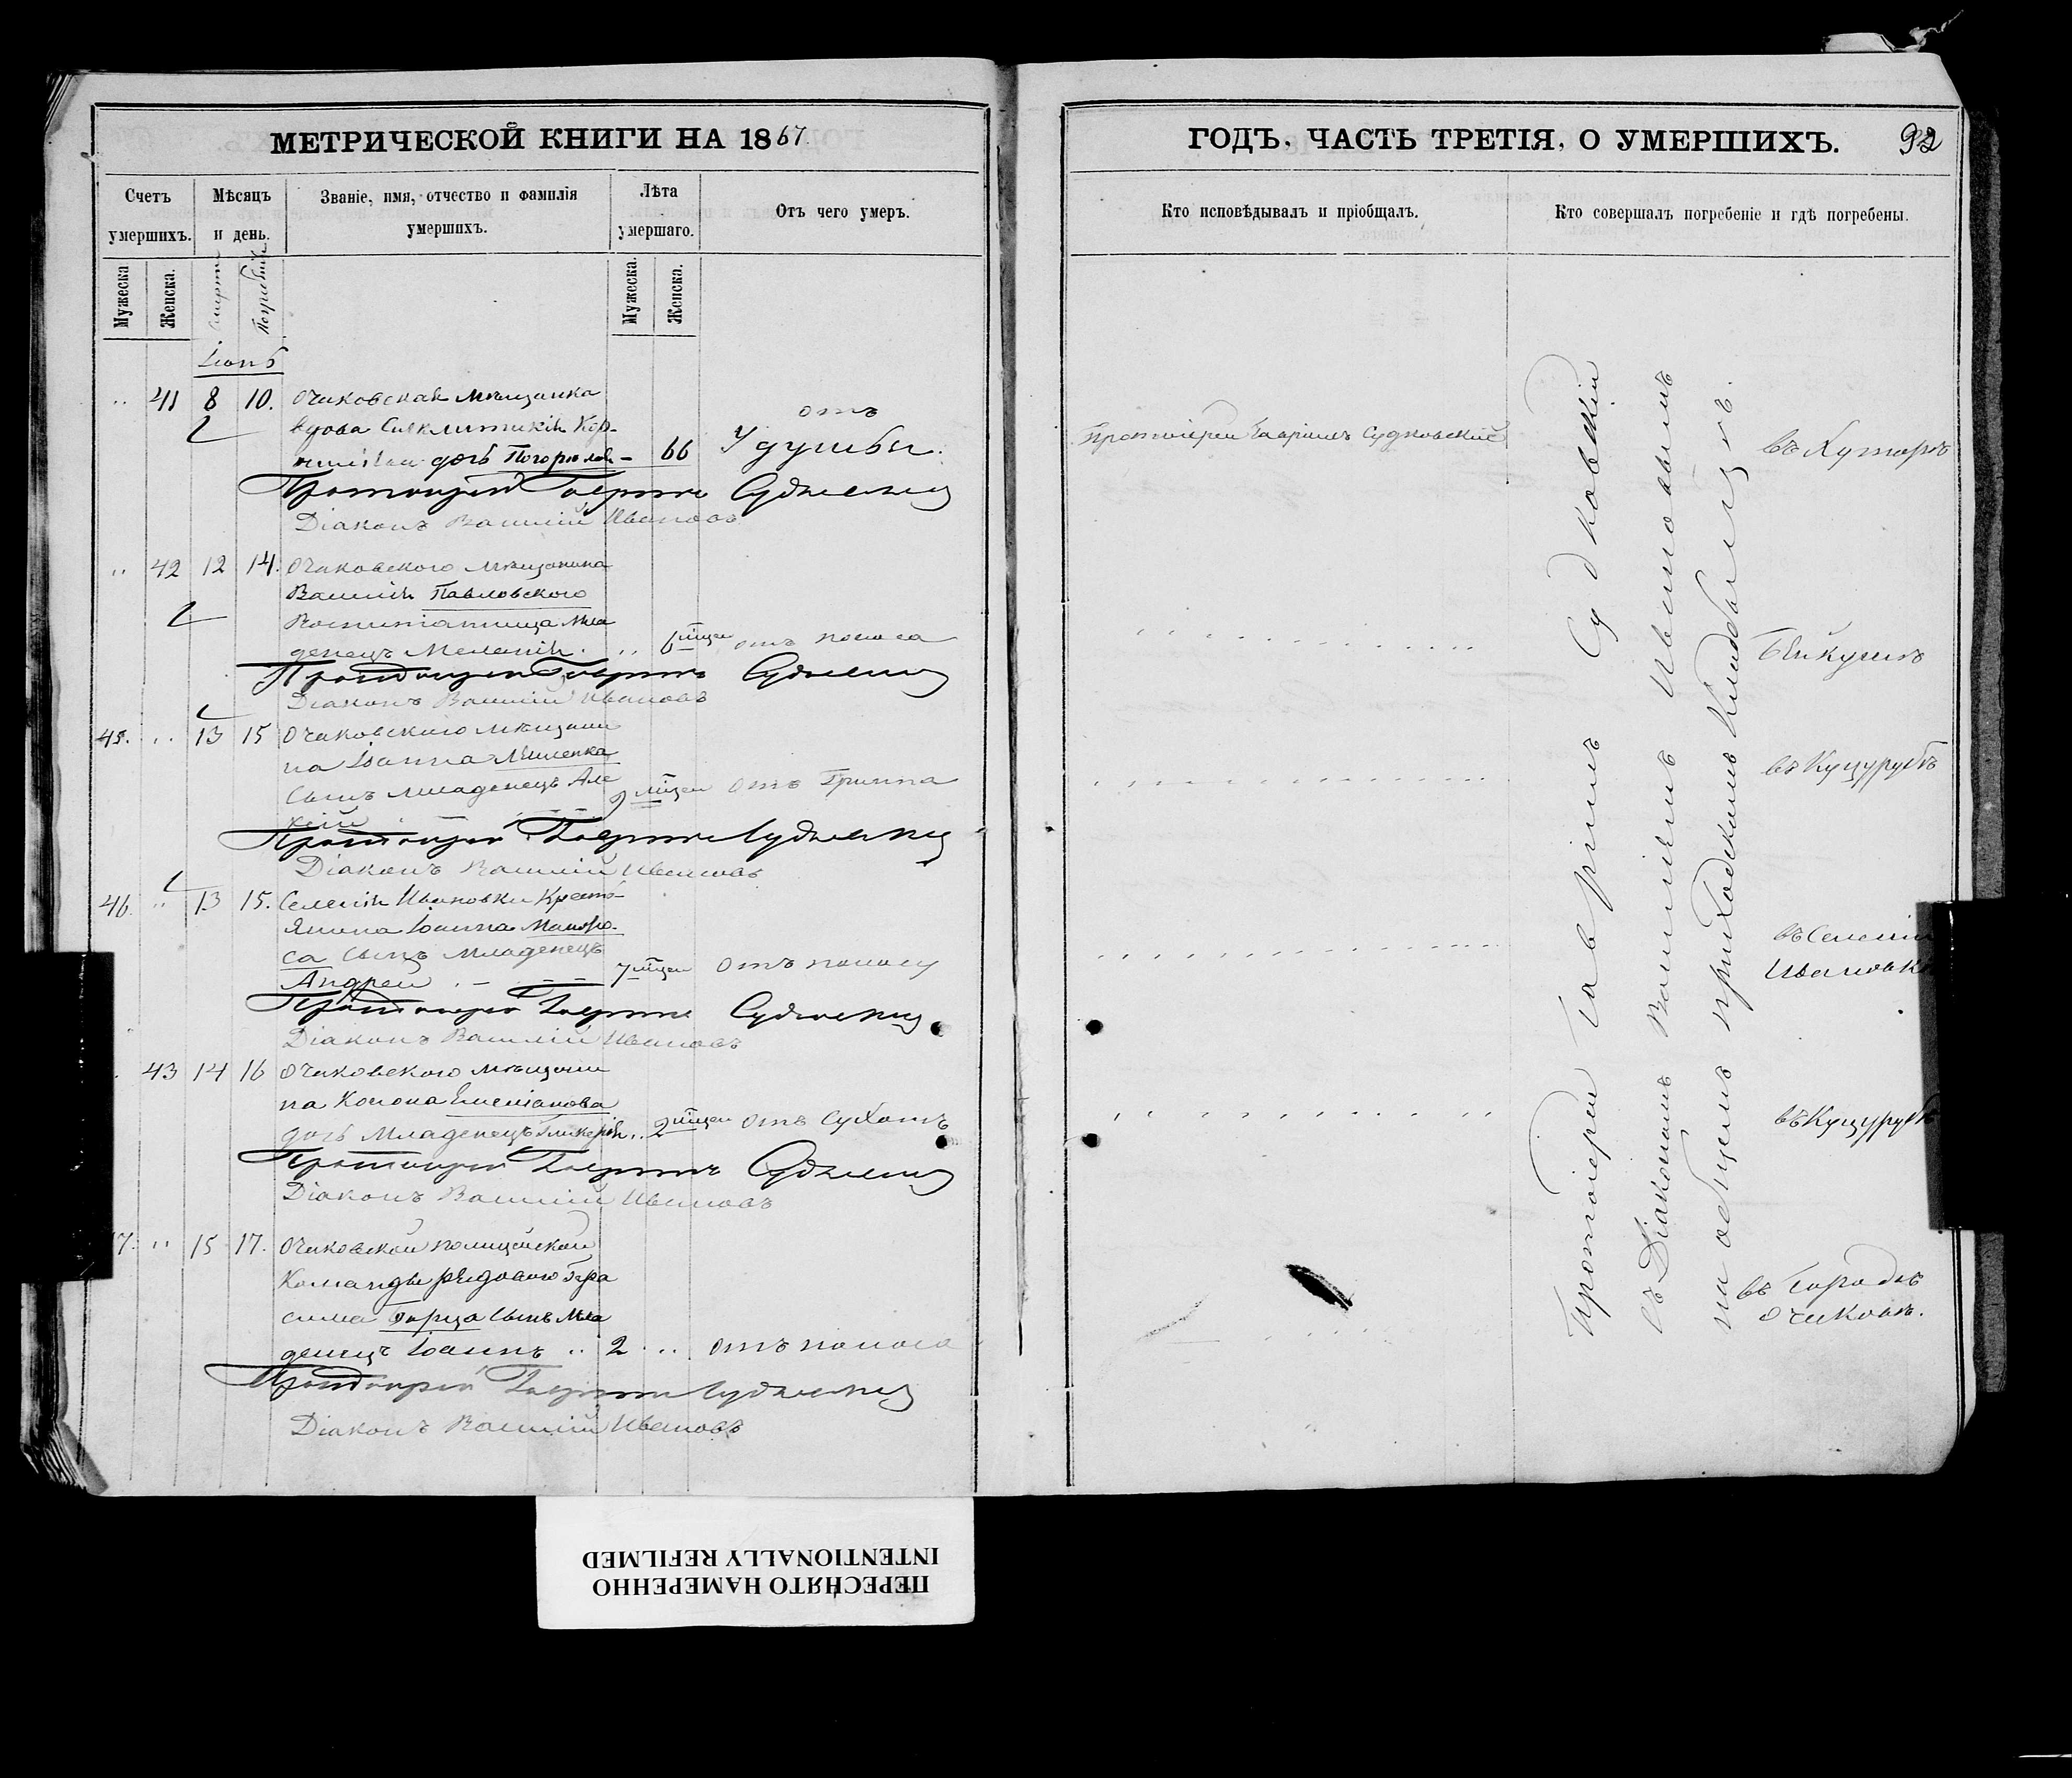 МЕТРИЧЕСКОЙ КНИГИ НА 1867
Счетъ умершихъ.
Мѣсяцъ и день.
Званіе, имя, отчество и фамилія умершихъ.
Лѣта умершаго.
Отъ чего умеръ.
Мужеска
Женска.
Смерти
Погребенія
Мужеска.
Женска.
Іюнь
41 8 10. Очаковская мѣщанка
вдова
дочь Погорѣлов 66 отъ
Удушья.
Протоіерей Гавріилъ Судковскій
Діаконъ Василій Ивановъ
42 12 14. Очаковского мѣщанина
Василія Павловского
Воспитанница мла
денецъ Меланія. 6 мцей отъ поноса
Протоіерей Гавріилъ Судковскій
Діаконъ Василій Ивановъ
45. 13 15 Очаковского мѣщани
на Іоанна
сынъ младенецъ Але
ксій 9 мцей отъ Гриппа
Протоіерей Гавріилъ Судковскій
Діаконъ Василій Ивановъ
46. 13 15. Селенія Ивановки Кресть
янина Іоанна
са сынъ младенецъ
Андрей 7 мцей отъ поносу
Протоіерей Гавріилъ Судковскій
Діаконъ Василій Ивановъ
43 14 16 Очаковского мѣщани
на Конона Емеліанова
дочь младенецъ Гликерія 2 мцей отъ сухотъ
Протоіерей Гавріилъ Судковскій
Діаконъ Василій Ивановъ
7. 15 17. Очаковской полицейской
Команды рядового Гера
сима Горца сынъ мла
денецъ Іоаннъ 2 отъ поноса
Протоіерей Гавріилъ Судковскій
Діаконъ Василій Ивановъ
ГОДЪ, ЧАСТЬ ТРЕТІЯ, О УМЕРШИХЪ. 92
Кто исповѣдывалъ и пріобщалъ.
Кто совершалъ погребеніе и гдѣ погребены.
Протоіерей Гавріилъ Судковскій
Протоіерей Гавріилъ Судковскій
съ Діакономъ Василіемъ Ивановымъ
на общемъ приходскомъ кладбищѣ.
въ Хуторѣ
Бейкушѣ
въ Куцурубѣ
въ Селеніи
Ивановкѣ
въ Куцурубѣ
въ Городѣ
Очаковѣ.
ПЕРЕСНЯТО НАМЕРЕННО
INTENTIONALLY REFILMED